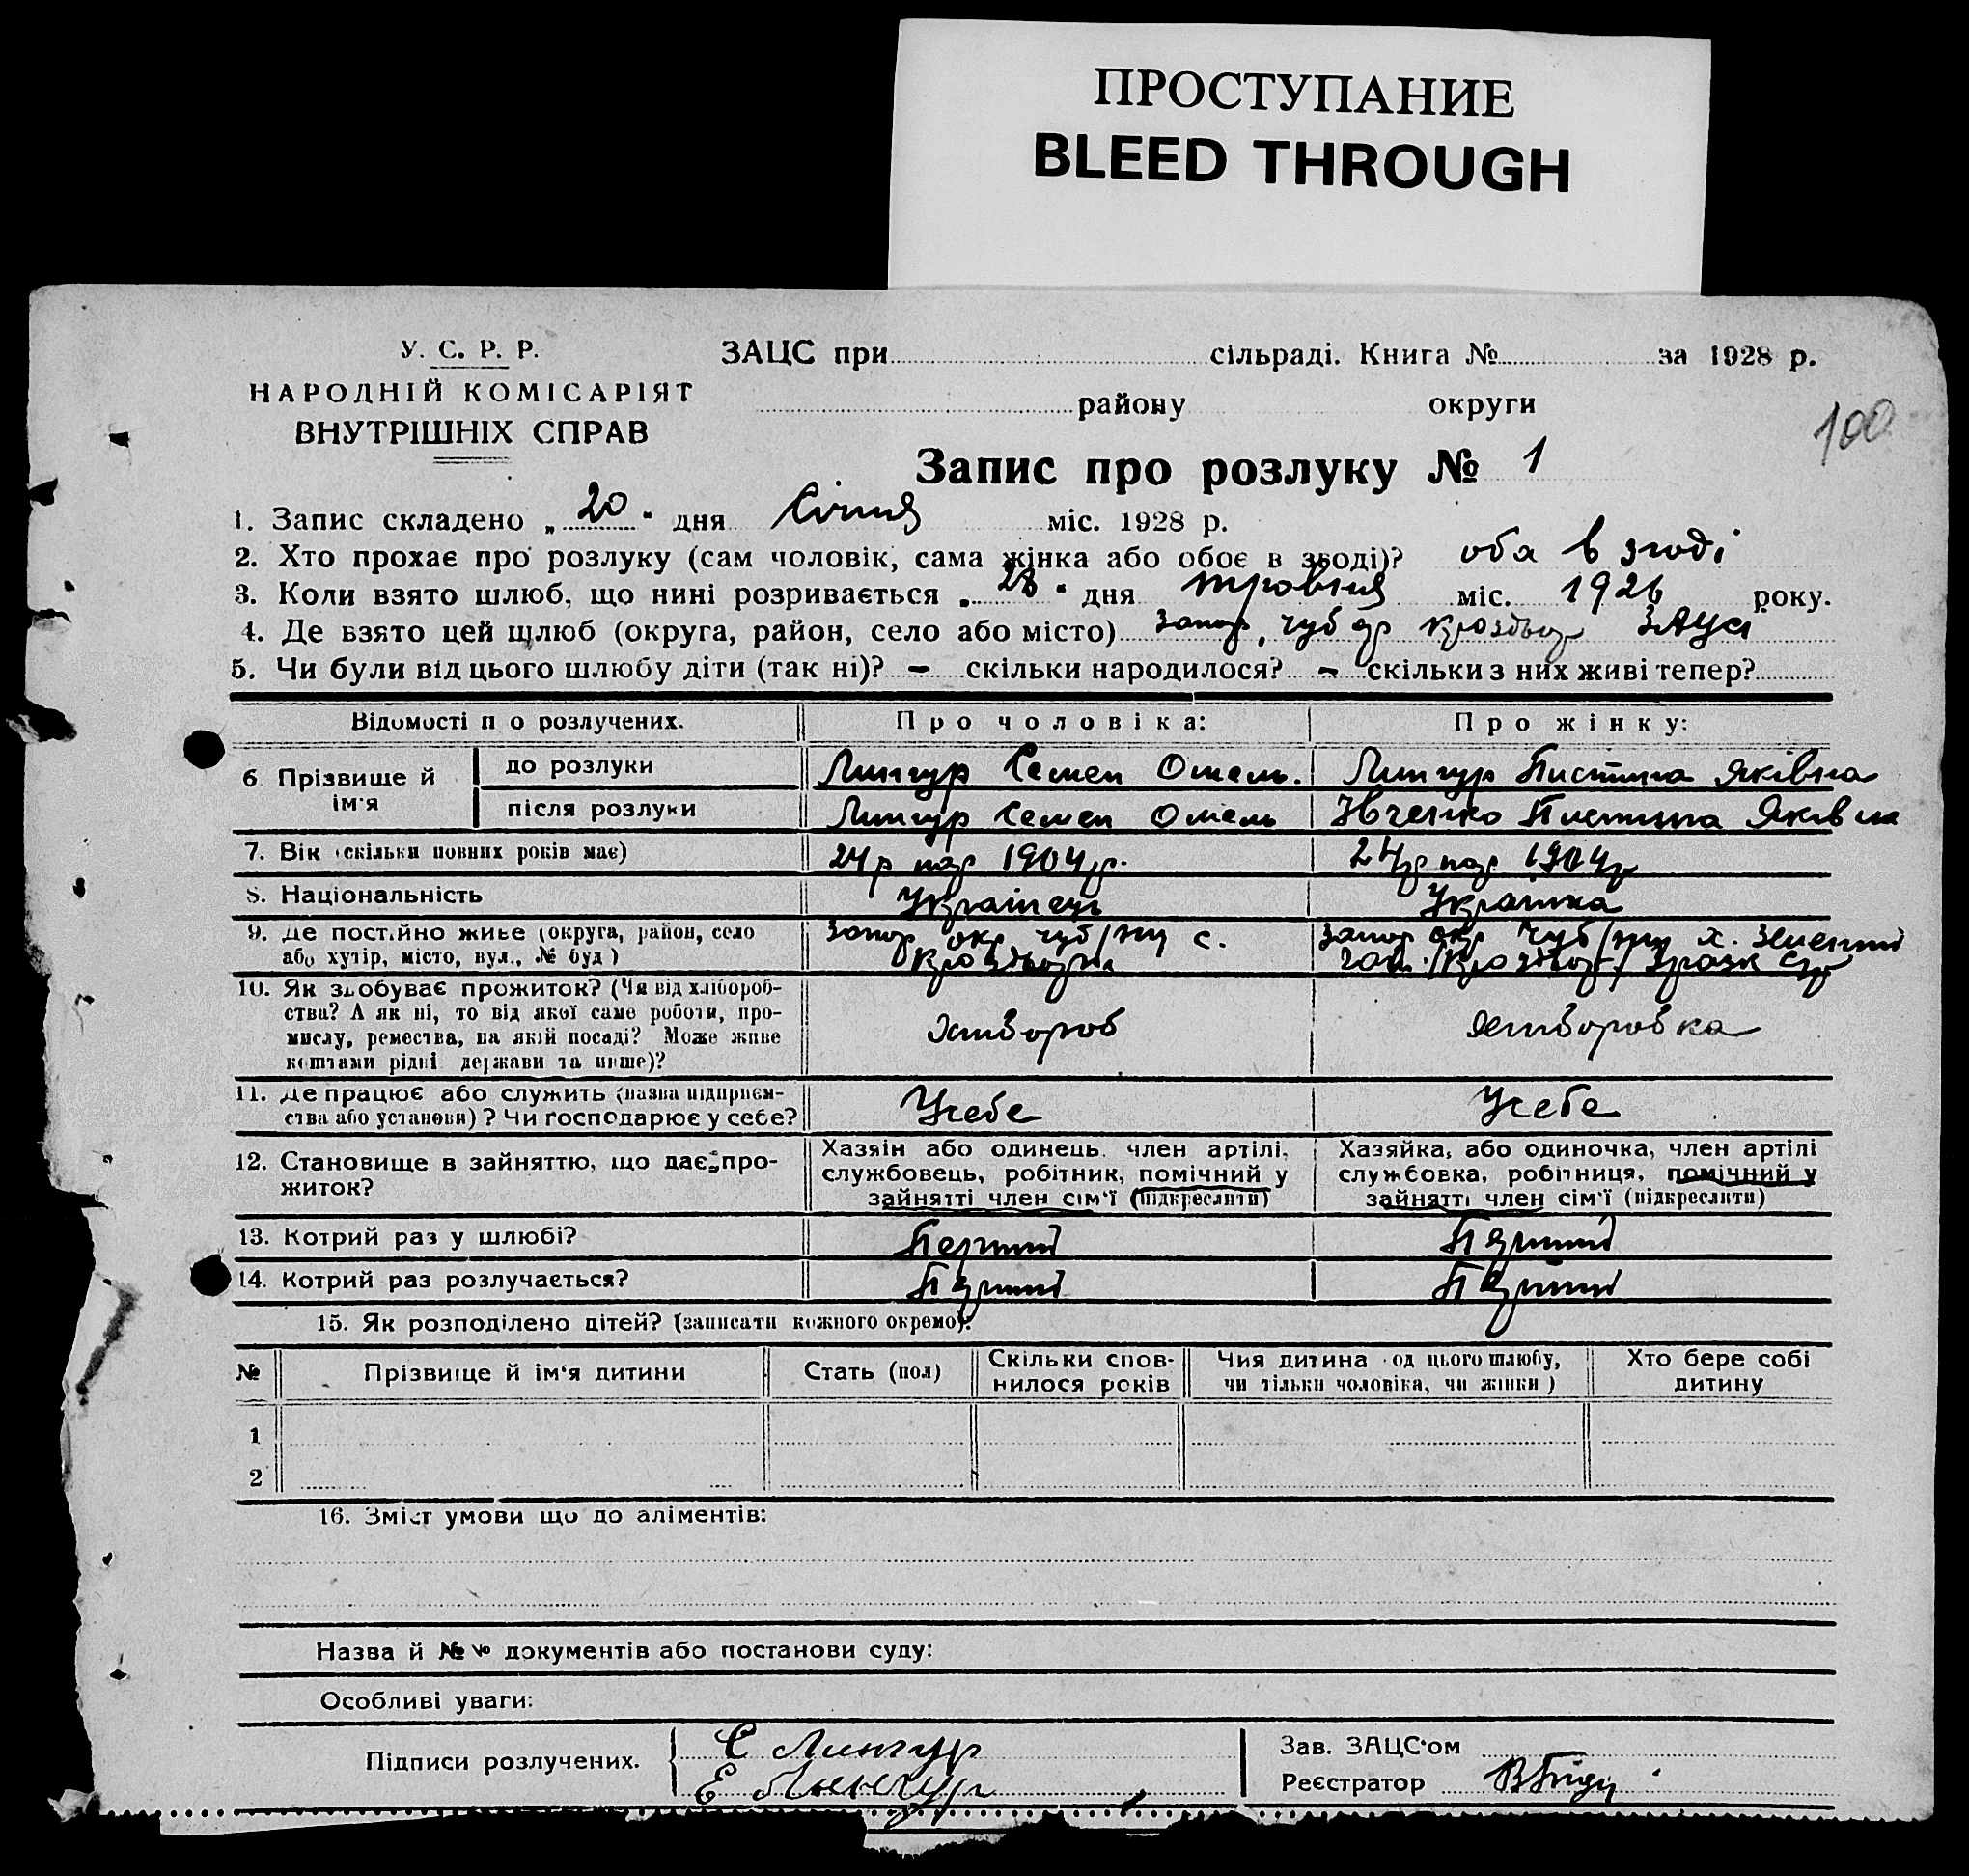 ПРОСТУПАНИЕ
BLEED THROUGH
У. С. Р. Р.
НАРОДНІЙ КОМІСАРІЯТ
ВНУТРІШНІХ СПРАВ
ЗАЦС при сільраді. Книга № за 1928 р.
району округи
100
Запис про розлуку № 1
1. Запис складено „20" дня Січня міс. 1928 р.
2. Хто прохає про розлуку (сам чоловік, сама жінка або обоє в згоді)? оба в згоді
3. Коли взято шлюб, що нині розривається „28" дня травня міс. 1926 року.
4. Де взято цей шлюб (округа, район, село або місто) Запор, чуб ЗАЦСі
5. Чи були від цього шлюбу діти (так ні)? – скільки народилося? – скільки з них живі тепер?
Відомості п о розлучених. Про чоловіка: Про жінку:
6 Прізвище й ім'я
до розлуки Лингур Семен Омель. Лингур Пистина Яківна
після розлуки Лингур Семен Омель Івченко Пистина Яківна
7. Вік (скільки повних років має) 24 р нар 1904 р. 24 р нар 1904 р
8. Національність Українець Українка
9. Де постійно живе (округа, район, село
або хутір, місто, вул., № буд)
Запор окр чуб/ну с.
Запор окр Чуб/ну х. Зелений
10. Як здобуває прожиток? (Чи від хлібороб-
ства? А як ні, то від якої саме роботи, про-
мислу, ремества, на якій посаді? Може живе
коштами рідні держави та инше)?
Хлібороб Хліборобка
11. Де працює або служить (назва підприєм-
ства або установи)? Чи господарює у себе?
Усебе Усебе
12. Становище в зайняттю, що дає про-
житок?
Хазяїн або одинець, член артілі,
службовець, робітник, помічний у
зайнятті член сім'ї (підкреслити)
Хазяйка, або одиночка, член артілі
службовка, робітниця, помічний у
зайнятті член сім'ї (підкреслити)
13. Котрий раз у шлюбі? Перший Перший
14. Котрий раз розлучається? Перший Перший
15. Як розподілено дітей? (записати кожного окремо).
№ Прізвище й ім'я дитини Стать (пол) Скільки спов-
нилося років Чия дитина (од цього шлюбу,
чи тільки чоловіка, чи жінки) Хто бере собі
дитину
1
2
16. Зміст умови що до аліментів:
Назва й №№ документів або постанови суду:
Особливі уваги:
Підписи розлучених. С Лингур
Е Лингур
Зав. ЗАЦС'ом
Реєстратор